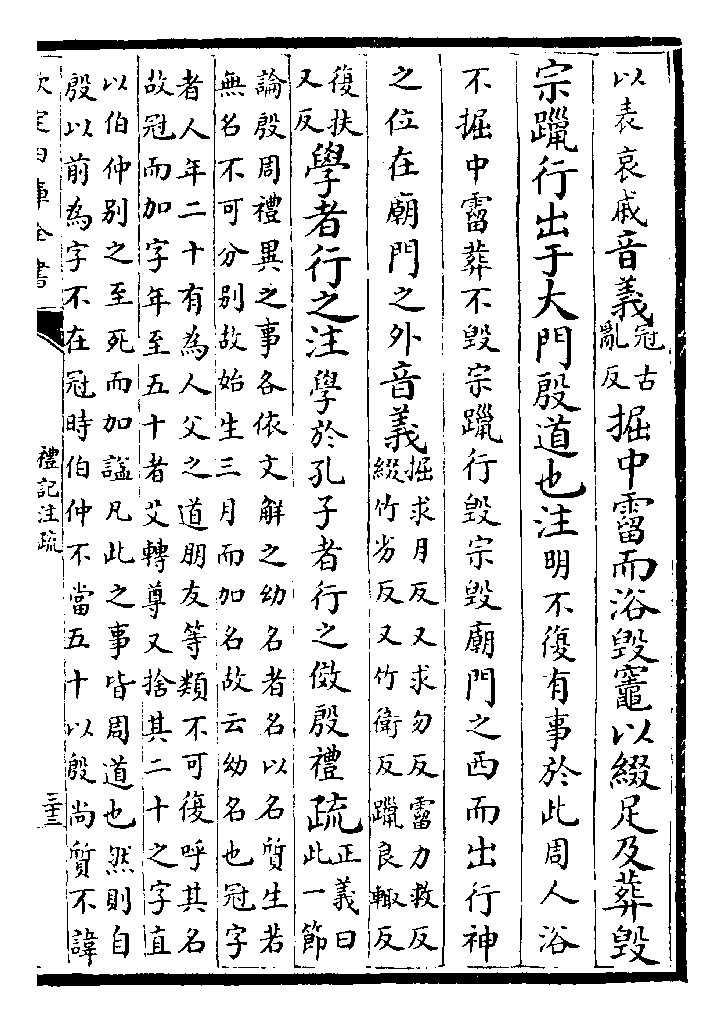 以表哀戚音義冠古
亂反掘中霤而浴毀竈以綴足及葬毀
宗躐行出于大門殷道也注明不復有事於此周人浴
不掘中霤葬不毀宗躐行毀宗毀廟門之西而出行神
之位在廟門之外音義掘求月反又求勿反霤力救反
綴竹劣反又竹衛反躐良輒反
復扶
又反學者行之注學於孔子者行之傚殷禮疏正義曰
此一節
論殷周禮異之事各依文解之幼名者名以名質生若
無名不可分別故始生三月而加名故云幼名也冠字
者人年二十有為人父之道朋友等類不可復呼其名
故冠而加字年至五十者艾轉尊又捨其二十之字直
以伯仲別之至死而加諡凡此之事皆周道也然則自
殷以前為字不在冠時伯仲不當五十以殷尚質不諱
欽定四庫全書
禮記注疏